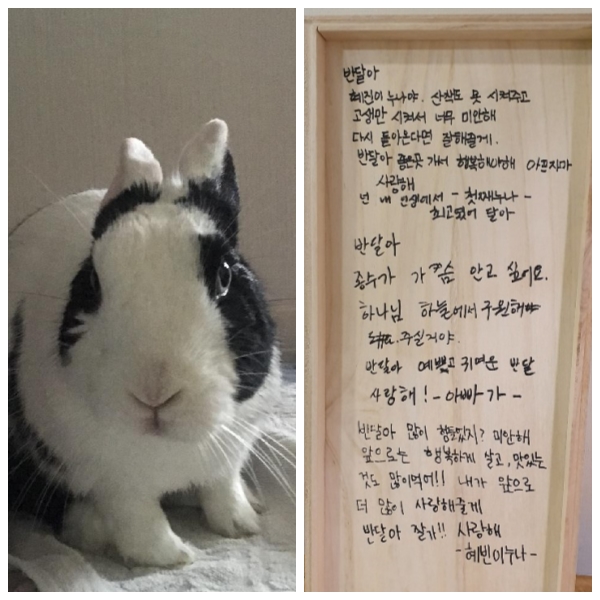 반달아
혜진이 누나야. 산책도 못 시켜주고
고생만 시켜서 너무 미안해
다시 돌아온다면 잘해줄게.
반달아 좋은곳 가서 행복해야해 아프지마
사랑해
넌 내 인생에서 - 첫째누나 -
최고였어 달아
반달아
가슴 안고 싶어요.
하나님 하늘에서 구원해
주실거야.
반달아 예쁘고 귀여운 반달
사랑해! - 아빠가 -
반달아 많이 힘들었지? 미안해
앞으로는 행복하게 살고, 맛있는
것도 많이먹어!! 내가 앞으로
더 많이 사랑해줄게
반달아 잘가!! 사랑해
- 혜빈이누나 -